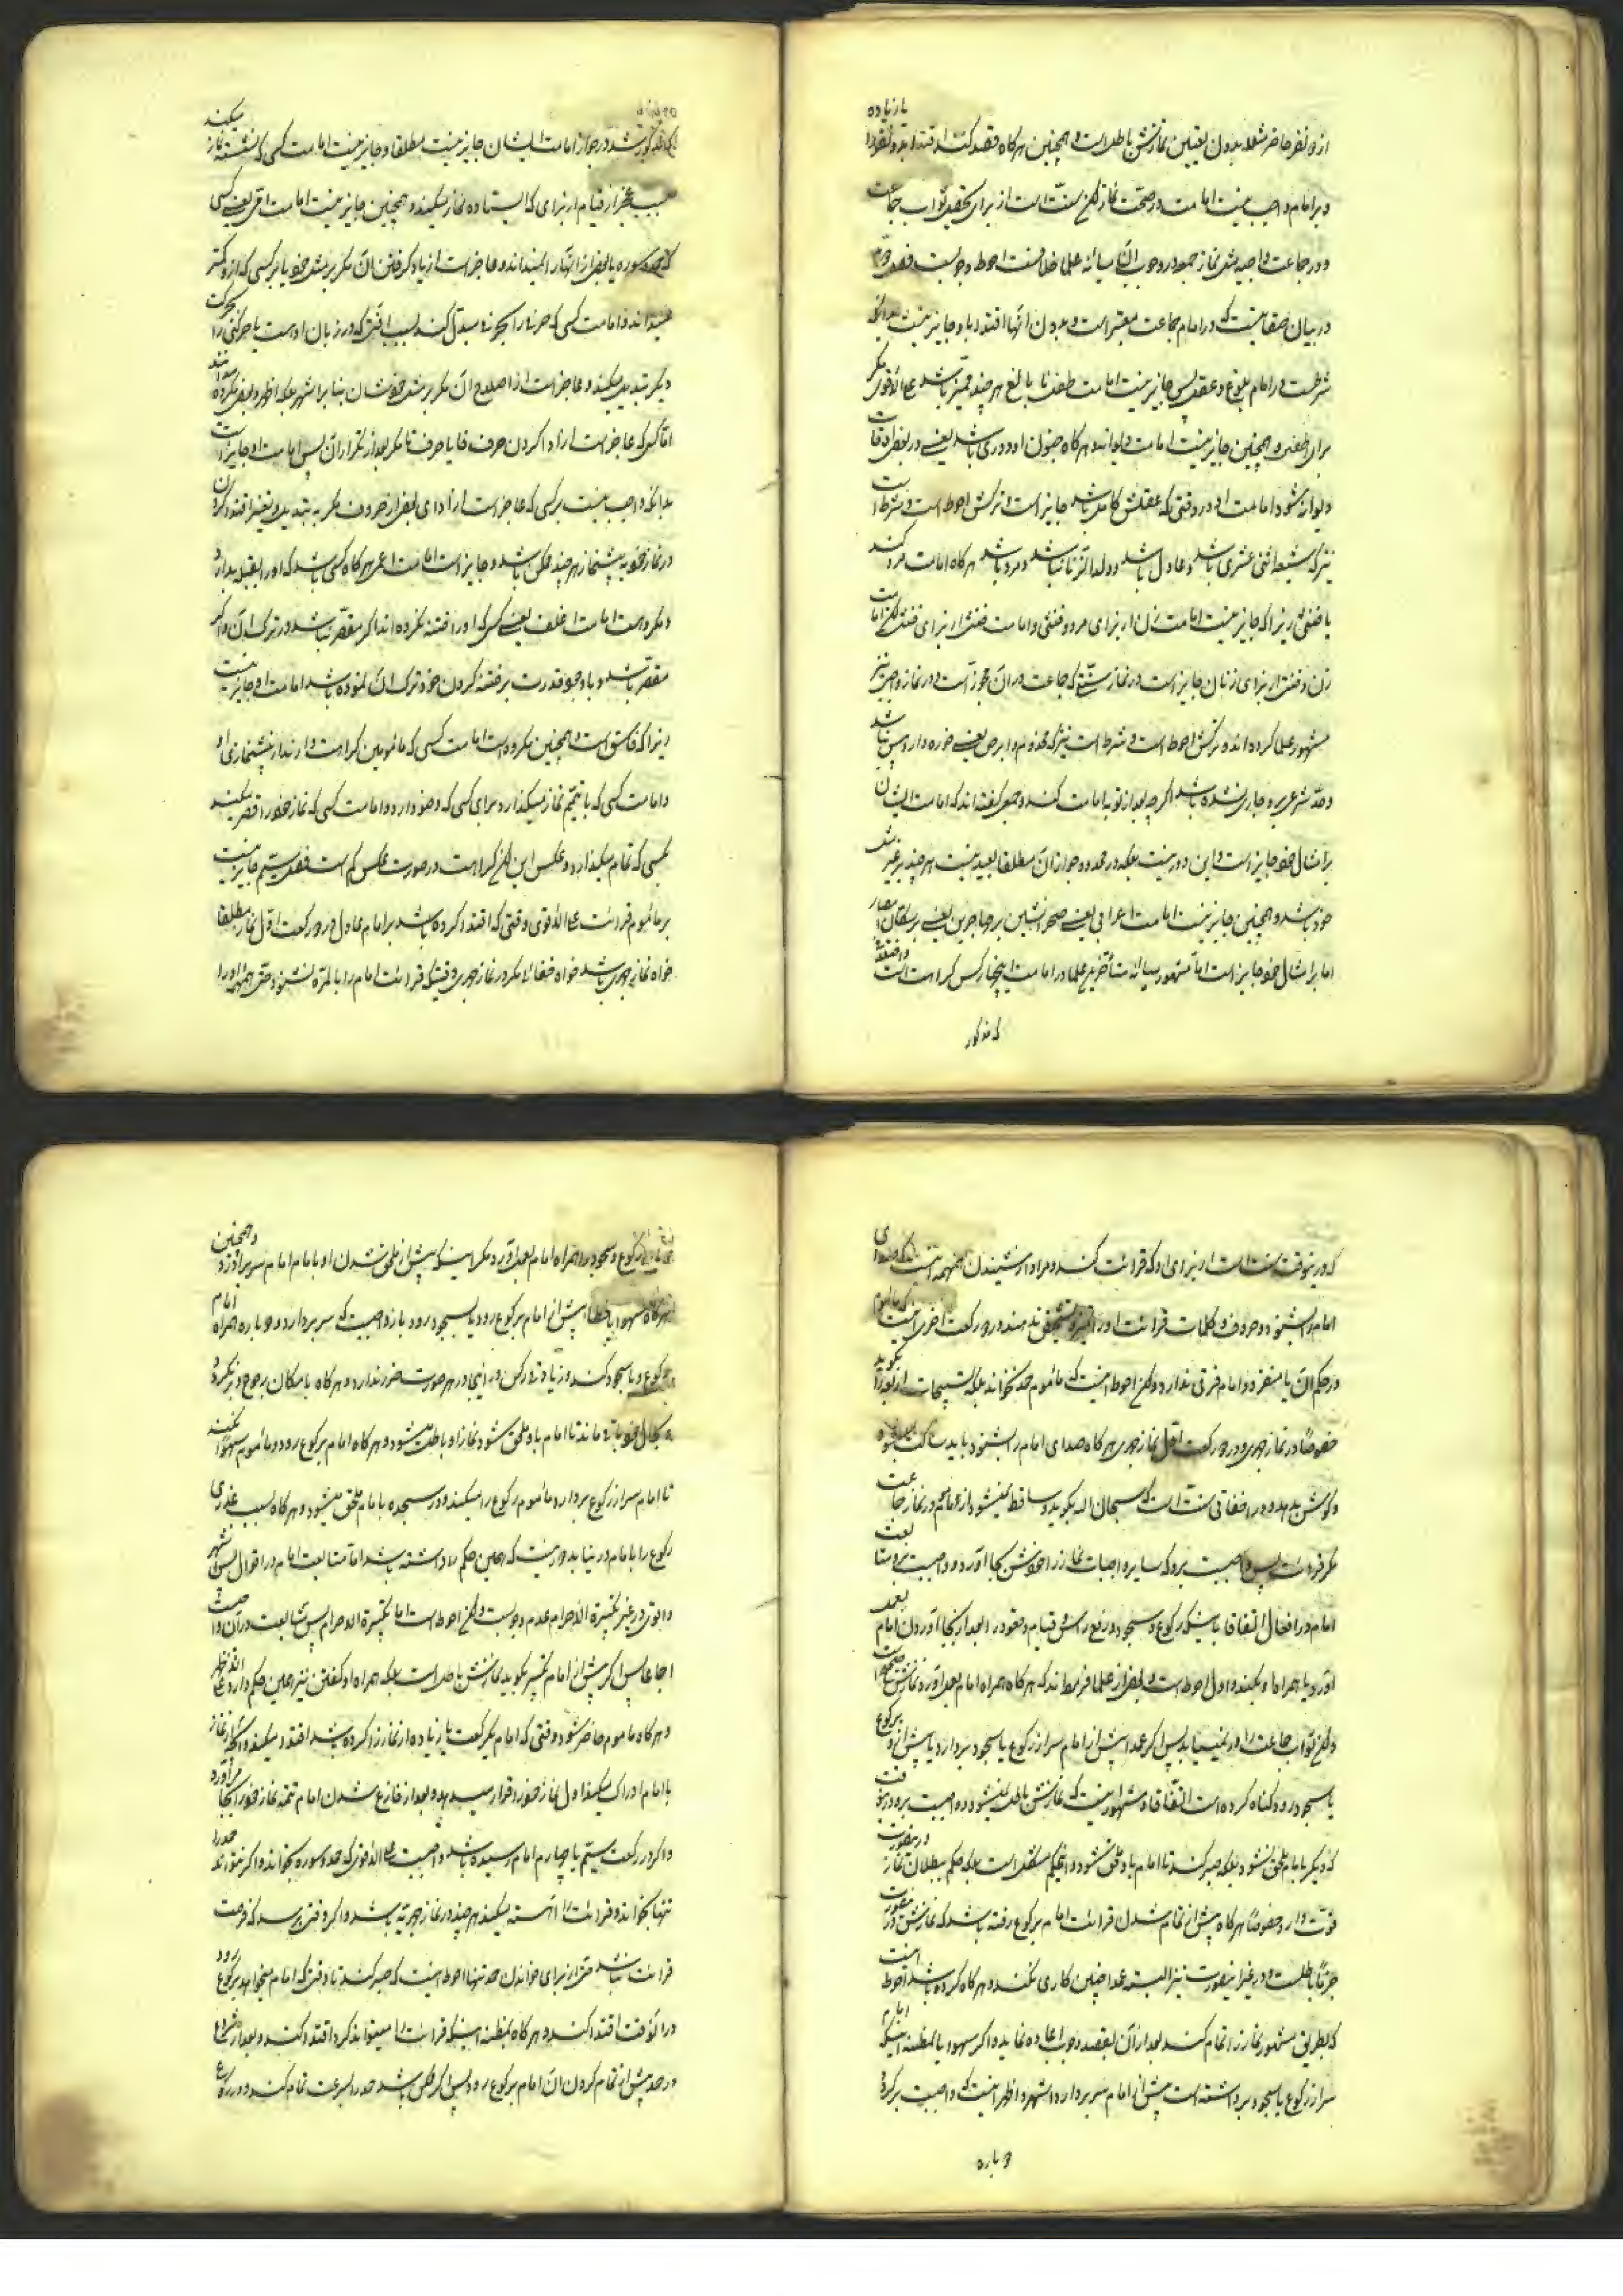 از دو نفر حاضر مثلا بدون تعیین نمازش باطل است و همچنین هرگاه قصد کند اقتدا بدو نفر را یا زیاده
و بر امام واجب نیست امامت در صحت نماز لکن سنت است از برای تحقق ثواب جماعت
و در جماعت واجبه مثل نماز جمعه در وجوب آن میانه علما خلاف است احوط وجوبست
در بیان صفاتیست که در امام جماعت معتبر است و بدون آنها اقتدا باو جایز نیست بدانکه
شرطست در امام بلوغ و عقل پس جایز نیست امامت طفل نا بالغ هر چند ممیز باشد علی الاقوی مگر
برای طفل و همچنین جایز نیست امامت دیوانه و هرگاه جنون او دوری باشد یعنی در بعض اوقات
دیوانه شود امامت او در وقتی که عقلش کامل باشد جایز است و ترکش احوط است و شرط است
نیز که شیعه اثنی عشری باشد و عادل باشد و ولد الزنا نباشد و مرد باشد هرگاه امامت مرد کند
یا خنثی زیرا که جایز نیست امامت زن از برای مرد و خنثی و امامت خنثی از برای خنثی لکن امامت
زن و خنثی از برای زنان جایز است در نماز سنتی که جماعت در آن مجوز است و در نماز واجب نیز
مشهور علما کرده اند و ترکش احوط است و شرط است نیز که مجذوم و ابرص یعنی خوره دار و پیس نباشد
و حد شرعی برو جاری نشده باشد اگر چه بعد از توبه امامت کند و جمعی گفته اند که امامت ایشان
بر امثال خود جایز است و این دور نیست بلکه در محدود جواز آن مطلقا بعید نیست هر چند بر غیر مثل
خود باشد و همچنین جایز نیست امامت اعرابی یعنی صحرا نشین بر مهاجرین یعنی بر ساکنان امصار
اما بر امثال خود جایز است اما مشهور میانه متأخرین علما در امامت این چهار کس کراهت است
که مذکور
شد در جواز امامت ایشان جایز نیست مطلقا و جایز نیست امامت کسی که نشسته نماز میکند
بسبب عجز از قیام از برای کسی که ایستاده نماز میکند و همچنین جایز نیست امامت امی یعنی کسی
که حمد و سوره یا بعض از آنها را نمیداند و عاجز است از یاد گرفتن آن مگر بر مثل خود یا بر کسی که از او کمتر
میداند و امامت کسی که حرفی را بحرفی مبدل کند بسبب آفتی که در زبان اوست یا حرکتی را بحرکت
دیگر تبدیل میکند و عاجز است از اصلاح آن مگر بر مثل خودشان بنا بر اشهر بلکه اظهر و بعض مکروه میدانند
اما کسی که عاجز است از ادا کردن حرف فا یا حرف تا مگر بعد از تکرار آن پس امامت او جایز است
بدانکه واجب نیست بر کسی که عاجز است از ادای بعض از حروف مگر به تبدیل و تغییر اقتدا کردن
در نماز خود به پیشنماز هر چند ممکن باشد و جایز است امامت اعمی هرگاه کسی باشد که او را بقبله بدارد
و مکروهست امامت اغلف یعنی کسی که او را ختنه نکرده اند اگر مقصر نباشد در ترک آن و اگر
مقصر باشد و با وجود قدرت بر ختنه کردن خود ترک آن نموده باشد امامت او جایز نیست
زیرا که فاسق است و همچنین مکروه است امامت کسی که مأمومین کراهت دارند از پیشنمازی او
و امامت کسی که با تیمم نماز میگذارد برای کسی که وضو دارد و امامت کسی که نماز خود را قصر میکند
بکسی که تمام میگذارد و عکس این لکن کراهت در صورت عکس کم است جایز نیست
بر مأموم قرائت علی الاقوی وقتی که اقتدا کرده باشد بر امام عادل در دو رکعت اول نماز مطلقا
خواه نماز جهری باشد خواه اخفائی مگر در نماز جهری وقتیکه قرائت امام را بالمرة نشنود حتی همهمه او را
که در ینوقت سنت است از برای او که قرائت کند و مراد از شنیدن همهمه اینست که صدای
امام را شنود و حروف و کلمات قرائت او را تمیز و تشخیص ندهد و در دو رکعت آخری مأموم
در حکم آن با منفرد و امام فرقی ندارد و لکن احوط اینست که مأموم حمد نخواند بلکه تسبیحات اربعه را بگوید
خصوصا در نماز جهری و در دو رکعت اول نماز جهری هرگاه صدای امام را شنود باید ساکت شود
و گوش بدهد و در اخفاتی سنت است که سبحان الله بگوید و ساقط نمیشود از مأموم در نماز جماعت
مگر قرائت پس واجبست برو که سایر واجبات نماز را خودش بجا آورد و واجبست برو متابعت
امام در افعال اتفاقا باینکه رکوع و سجود و رفع رأس و قیام و قعود را بعد از بجا آوردن امام بعمل
آورد یا همراه او بکند و اول احوط است و بعض از علما فرموده اند که هرگاه همراه امام بعمل آورد نمازش صحیح است
ولکن ثواب جماعت را در نمییابد پس اگر عمدا پیش از امام سر از رکوع یا سجود بردارد یا پیش از و برکوع
یا سجود رود گناه کرده است اتفاقا و مشهور اینست که نمازش باطل نمیشود و واجبست برو درینوقت
که دیگر بامام ملحق نشود بلکه صبر کند تا امام باو ملحق شود و این حکم مشکل است بلکه حکم ببطلان نماز درینصورت
قوت دارد خصوصا هرگاه پیش از تمام شدن قرائت امام برکوع رفته باشد که نمازش در ینصورت
جزما باطلست و در غیر اینصورت نیز البته عمدا چنین کاری نکند و هرگاه کرده باشد احوط اینست
که بطریق مشهور نماز را تمام کند بعد از آن بقصد وجوب اعاده نماید و اگر سهوا یا بمظنه اینکه امام
سر از رکوع یا سجود برداشته است پیش از امام سر بردارد اشهر و اظهر اینست که واجبست برگردد
دوباره
رکوع و سجود را همراه امام بعمل آورد مگر اینکه پیش از ملحق شدن او بامام امام سر بردارد و همچنین
هرگاه سهوا یا خطاء پیش از امام برکوع رود یا بسجود رود باز واجبست که سر بردارد و دوباره همراه امام
رکوع و یا سجود کند و زیادتی رکن در اینجا در هر صورت ضرر ندارد و هرگاه با امکان رجوع برنگردد
و بحال خود باقی ماند تا امام باو ملحق شود نماز او باطل میشود و هرگاه امام برکوع رود و مأموم سهوا نکند
تا امام سر از رکوع بردارد مأموم رکوع را میکند و در سجده بامام ملحق میشود و هرگاه بسبب عذری
رکوع را با امام در نیابد دور نیست که همین حکم را داشته باشد اما متابعت امام در اقوال پس اشهر
و اقوی در غیر تکبیرة الاحرام عدم وجوبست و لکن احوط است اما تکبیرة الاحرام پس متابعت در آن واجبست
اجماعا پس اگر پیش از امام تکبیر بگوید نمازش باطل است بلکه همراه او گفتن نیز همین حکم دارد علی الاظهر
و هرگاه مأموم حاضر شود وقتی که امام یکرکعت یا زیاده از نماز را کرده باشد اقتدا میکند و آنچه از نماز
با امام ادراک میکند اول نماز خود قرار میدهد و بعد از فارغ شدن امام تتمه نماز خود را بجا میآورد
و اگر در رکعت سیم یا چهارم امام رسیده باشد واجبست علی الاقوی که حمد و سوره بخواند و اگر نتواند حمد را
تنها بخواند و قرائت را آهسته میکند هر چند در نماز جهریه باشد و اگر وقتی برسد که فرصت
قرائت نباشد حتی از برای خواندن حمد تنها احوط اینست که صبر کند تا وقتی که امام میخواهد برکوع رود
در آنوقت اقتدا کند و هرگاه بمظنه اینکه قرائت را میتواند کرد اقتدا کند و بعد از شروع
در حمد پیش از تمام کردن آن امام برکوع رود پس اگر ممکن باشد حمد را بسرعت تمام کند و در رکوع